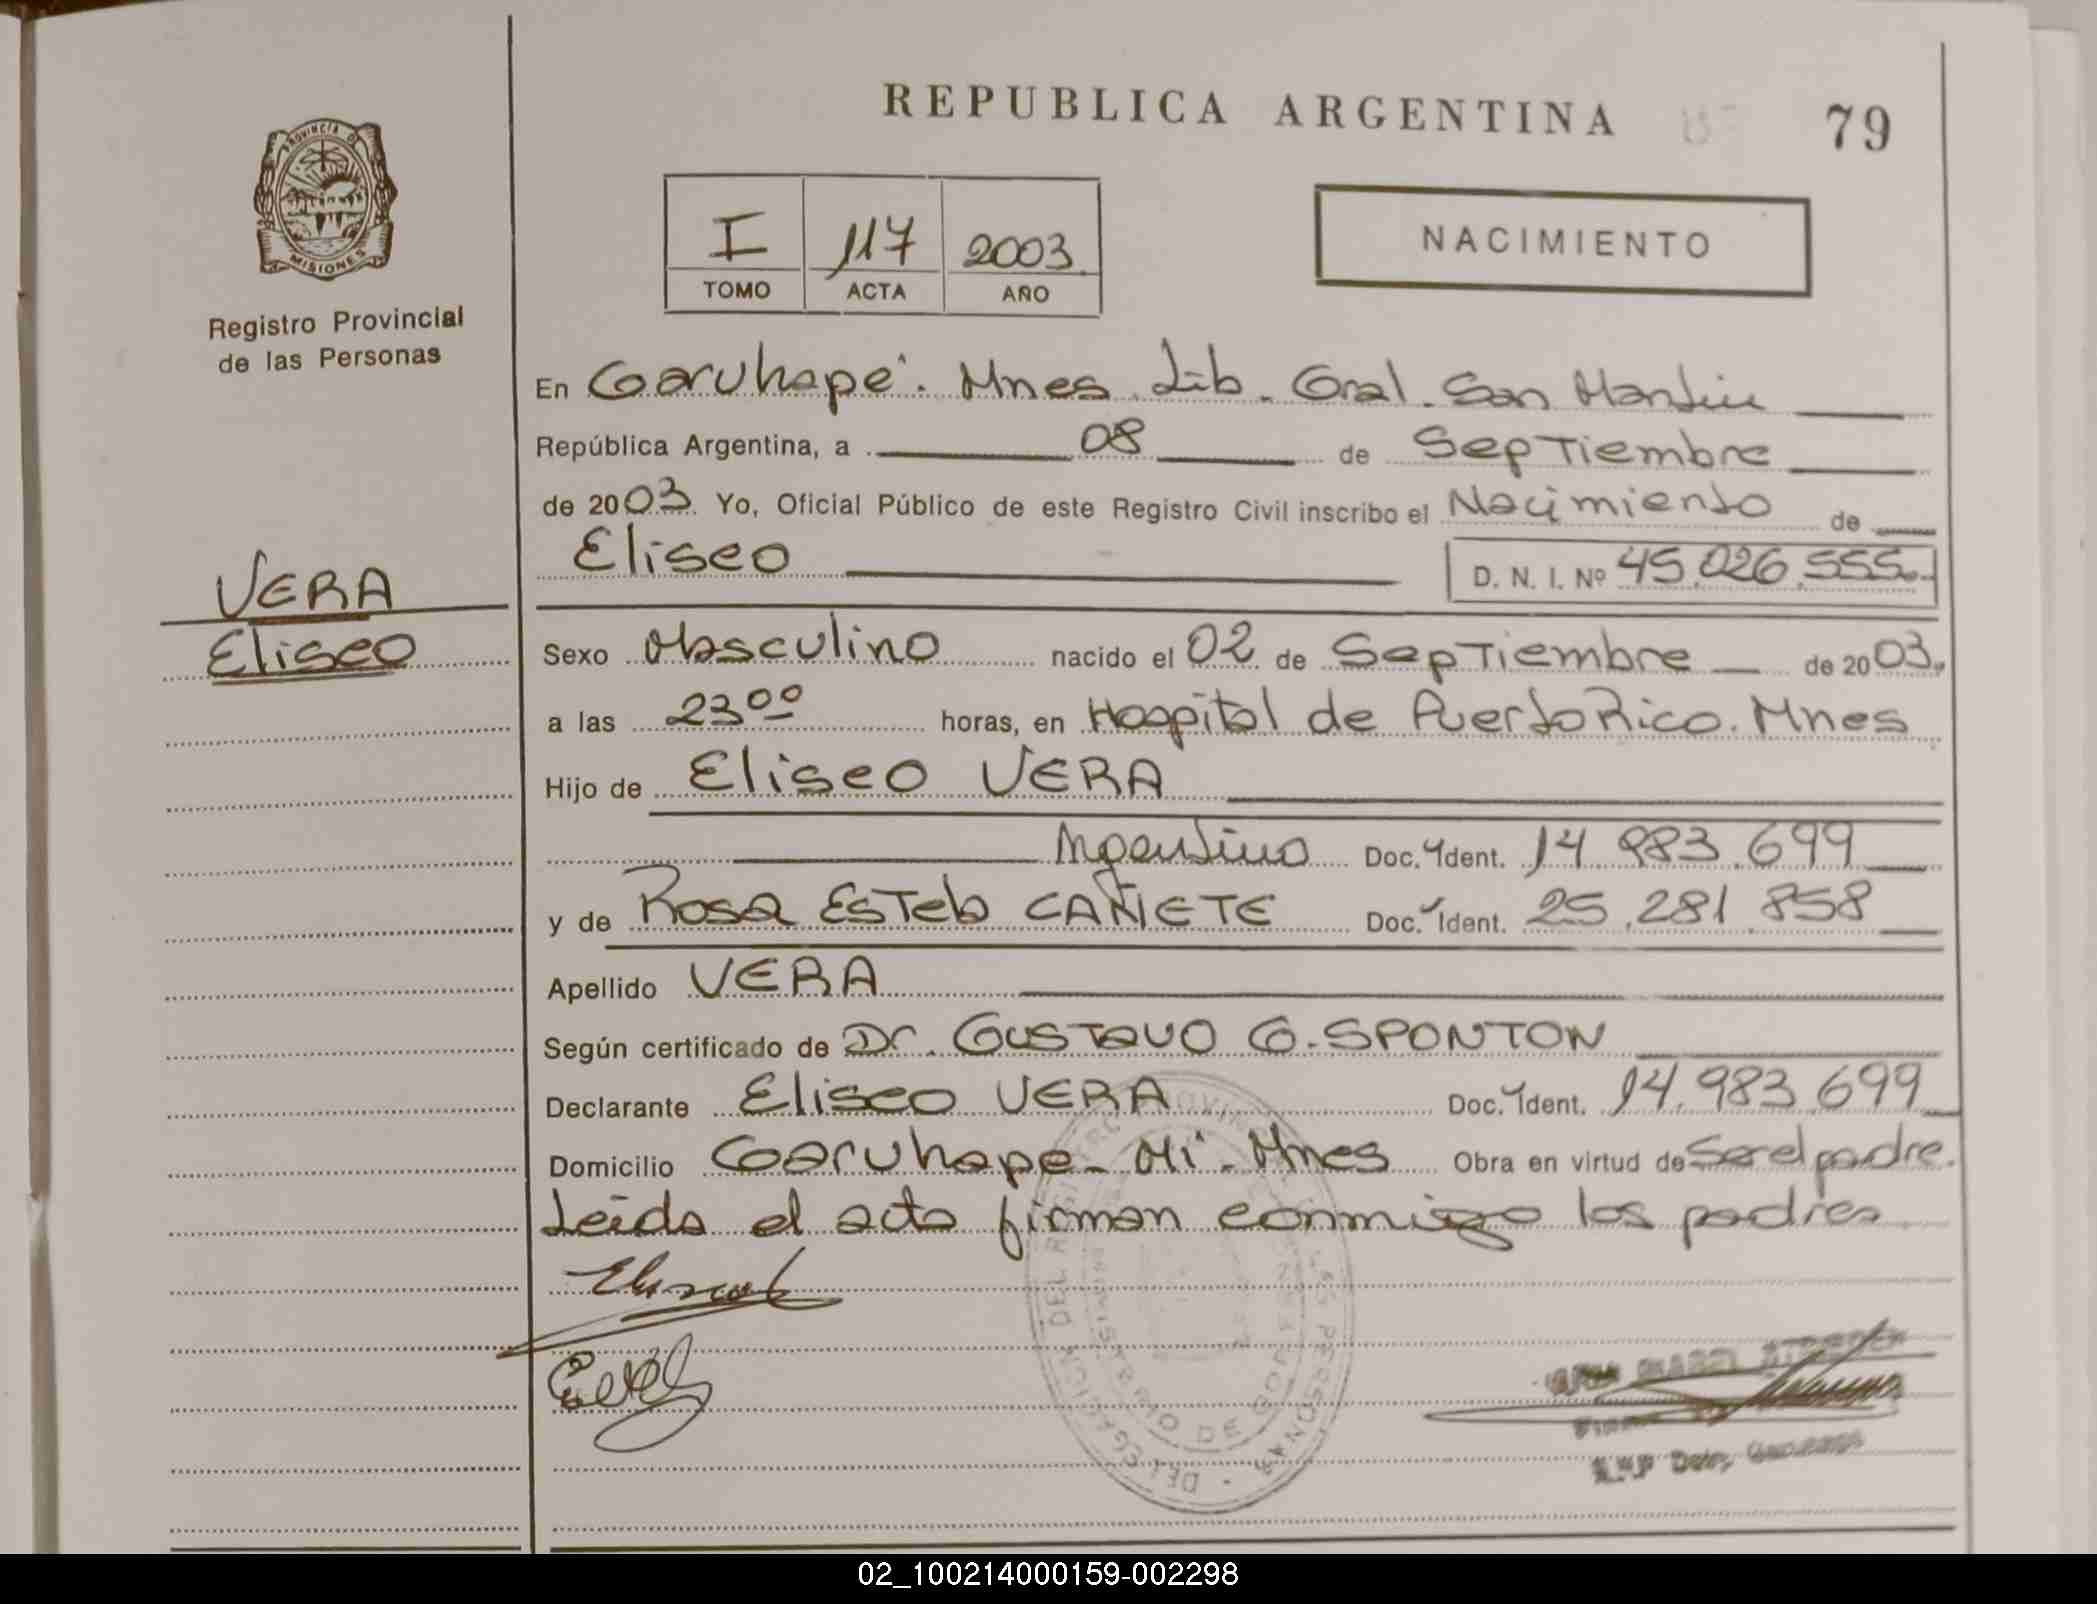 REPUBLICA ARGENTINA
79
PROVINCIA DE
MISIONES
Registro Provincial
de las Personas
I 117 2003
TOMO ACTA AÑO
NACIMIENTO
En Garuhapé. Mnes. Lib. Gral. San Martin
República Argentina, a 08 de Septiembre
de 2003. Yo, Oficial Público de este Registro Civil inscribo el Nacimiento de
Eliseo D. N. I. Nº 45.026.555
VERA
Eliseo
Sexo Masculino nacido el 02 de Septiembre de 2003.
a las 23⁰⁰ horas, en Hospital de Puerto Rico. Mnes
Hijo de Eliseo VERA
Argentino Doc. Ident. 14.983.699
y de Rosa Estela CAÑETE Doc. Ident. 25.281.858
Apellido VERA
Según certificado de Dr. Gustavo G. SPONTON
Declarante Eliseo VERA Doc. Ident. 14.983.699
Domicilio Garuhape - Mí - Mnes Obra en virtud de Ser el padre.
Leida el acta firman conmigo los padres
DELEGACION DEL REGISTRO PROVINCIAL DE LAS PERSONAS
MINISTERIO DE GOBIERNO
02_100214000159-002298